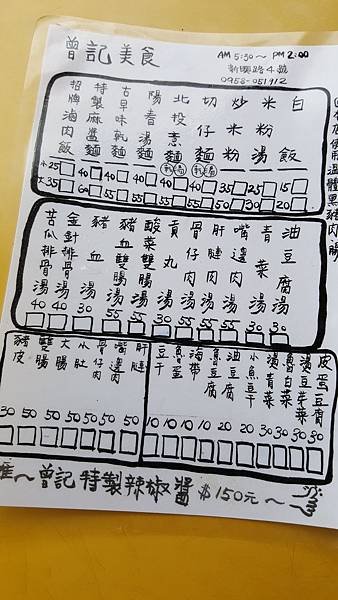 曾記美食
AM 5:30~ PM 2:00
新興路4號
0958-051912
本店使用溫體黑豬肉、腸
招牌滷肉飯 小25 大35
特製麻醬麵 40 60
古早味乾麵 40 55
陽春湯麵 40 55
北投煮麵 乾湯 40 55
切仔麵 乾湯 40 55
炒米粉 35 50
米粉湯 25 30
白飯 15 20
苦瓜排骨湯 40
金針排骨湯 40
豬血湯 30
豬血雙腸湯 55
酸菜雙腸湯 55
貢丸湯 30
骨仔肉湯 55
肝腱湯 55
嘴邊肉湯 50
青菜湯 30
油豆腐湯 30
豬皮 30
雙腸 50
大腸 50
小肚 50
骨仔肉 50
嘴邊肉 50
肝腱 50
豆干 10
魯蛋 10
海帶 10
魚豆腐 10
油豆腐 20
小魚豆干 20
湯青菜 30
魯白菜 30
湯豆芽菜 30
皮蛋豆腐 30
推~曾記特製辣椒醬 $150元~